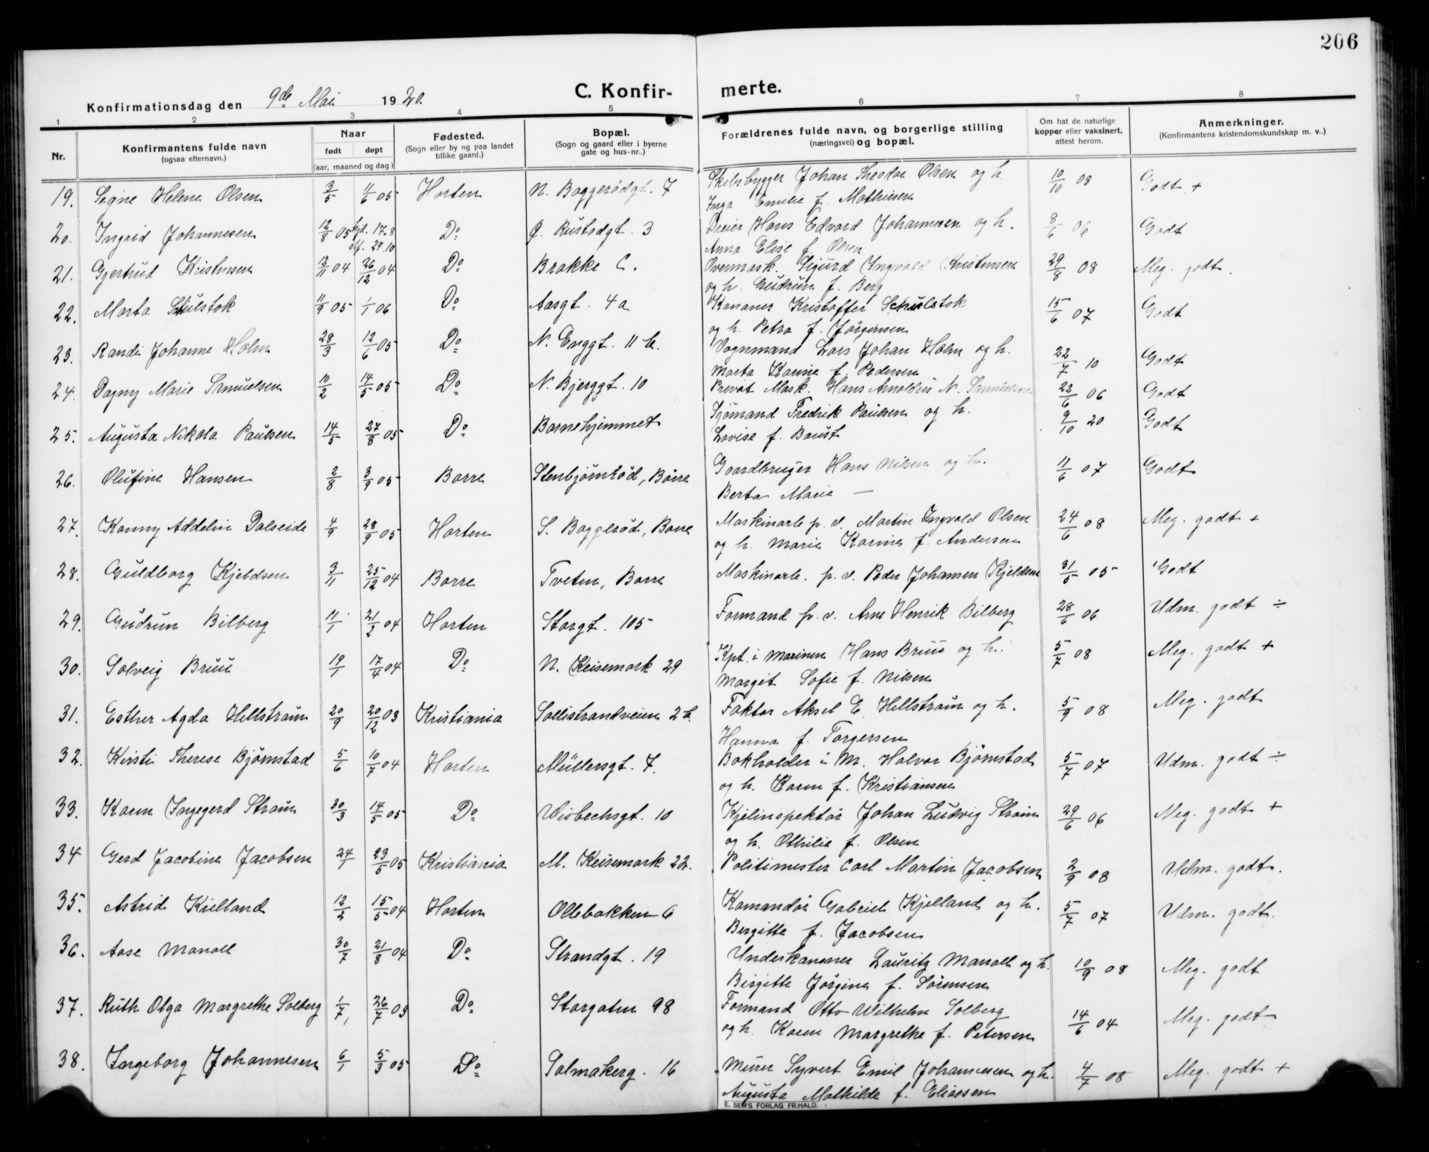 206
Konfirmationsdag den 9de Mai 1920.
C. Konfir- merte.
1 2 3 4 5 6 7 8
Nr.
Konfirmantens fulde navn
(ogsaa efternavn.)
Naar
født døpt
(aar, maaned og dag)
Fødested.
(Sogn eller by og paa landet
tillike gaard.)
Bopæl.
(Sogn og gaard eller i byerne
gate og hus-nr..)
Forældrenes fulde navn, og borgerlige stilling
(næringsvei) og bopæl.
Om hat de naturlige
kopper eller vaksinert,
attest herom.
Anmerkninger.
(Konfirmantens kristendomskundskap m. v..)
19. Signe Helene Olsen 3/5 4/6 05 Horten N. Baggerødgt. 7 Skibsbygger Johan Theodor Olsen og h. 10/10 08 Godt +
Inga Emilie f. Mathisen
20. Ingrid Johannesen 12/8 05 Do Ø. Rustadgt. 3 Dreier Hans Edvard Johannesen og h. 8/6 06 Godt
Anna Elise f. Olsen
21. Gjertrud Kristensen 13/11 04 26/12 04 Do Brakke C. Overmask. Sigurd Ingvald Kristensen 29/8 08 Meg. godt
og h. Gudrun f. Berg
22. Marta Schulstok 11/9 05 1/1 06 Do Aasgt. 4a Kanoner Kristoffer Schulstok 15/6 07 Godt
og h. Petra f. Jørgensen
23. Randi Johanne Holm 28/3 12/6 05 Do N. Enggt. 11 b. Vognmand Lars Johan Holm og h. 22/7 10 Godt
Marta Karine f. Pedersen
24. Dagny Marie Samuelsen 10/2 14/5 05 Do N. Bjerggt. 10 Privat Mask. Hans Arnoldus N. Samuelsen 22/6 06 Godt
25. Augusta Nikola Paulsen 14/5 27/8 05 Do Barnehjemmet Sjømand Fredrik Paulsen og h. 9/10 20 Godt
Lovise f. Baust
26. Olufine Hansen 2/8 3/9 05 Borre Stenbjørnrød, Borre Gaardbruger Hans Nilsen og h. 11/6 07 Godt
Berta Marie —
27. Kanny Addelin Dalseide 4/9 28/9 05 Horten S. Baggerød, Borre Maskinarb. p. v. Martin Ingvald Olsen 24/6 08 Meg. godt +
og h. Marie Karine f. Andersen
28. Guldborg Kjeldsen 3/11 25/12 04 Borre Tveten, Borre Maskinarb. p. v. Peder Johansen Kjeldsen 31/5 05 Godt
29. Gudrun Bilberg 11/1 21/2 04 Horten Storgt. 105 Formand p. v. Arne Henrik Bilberg 28/6 06 Udm. godt ÷
30. Solveig Bruu 19/1 17/4 04 Do N. Keisemark 29 Kpt. i Marinen Hans Bruu og h. 5/7 08 Meg. godt +
Margit Sofie f. Nilsen
31. Esther Agda Hellstrøm 20/9 20/12 03 Kristiania Sollistrandveien 2 b. Faktor Aksel E. Hellstrøm og h. 5/9 08 Meg. godt
Hanna f. Torgersen
32. Kirsti Therese Bjørnstad 5/6 10/7 04 Horten Müllersgt. 7. Bokholder i M. Halvor Bjørnstad 5/7 07 Udm. godt ÷
og h. Karen f. Kristiansen
33. Karen Ingegerd Strøm 30/3 14/5 05 Do Wiibechsgt. 10 Kjelinspektør Johan Ludvig Strøm 29/6 06 Meg. godt +
og h. Othilie f. Olsen
34 Gerd Jacobine Jacobsen 24/1 23/5 05 Kristiania M. Keisemark 22. Politimester Carl Martin Jacobsen 2/9 08 Udm. godt.
35. Astrid Kielland 12/2 15/5 04 Horten Olbbakken 6 Komandør Gabriel Kielland og h. 5/7 07 Udm. godt.
Bergitte f. Jacobsen
36. Aase Manoll 30/7 21/8 04 Do Strandgt. 19 Underkanoner Lauritz Manoll og h. 10/9 08 Meg. godt
Birgitte Jørgine f. Sørensen
37. Ruth Olga Margrethe Solberg 1/7, 26/7 03 Do Storgaten 98 Formand Otto Wilhelm Solberg 14/6 04 Meg. godt
og h. Karen Margrethe f. Petersen
38. Ingeborg Johannesen 6/1 5/3 05 Do Salmakerg. 16 Murer Syvert Emil Johannesen og h. 4/7 08 Meg. godt +
Augusta Mathilde f. Eliassen
E. SEM'S FORLAG FR.HALD.